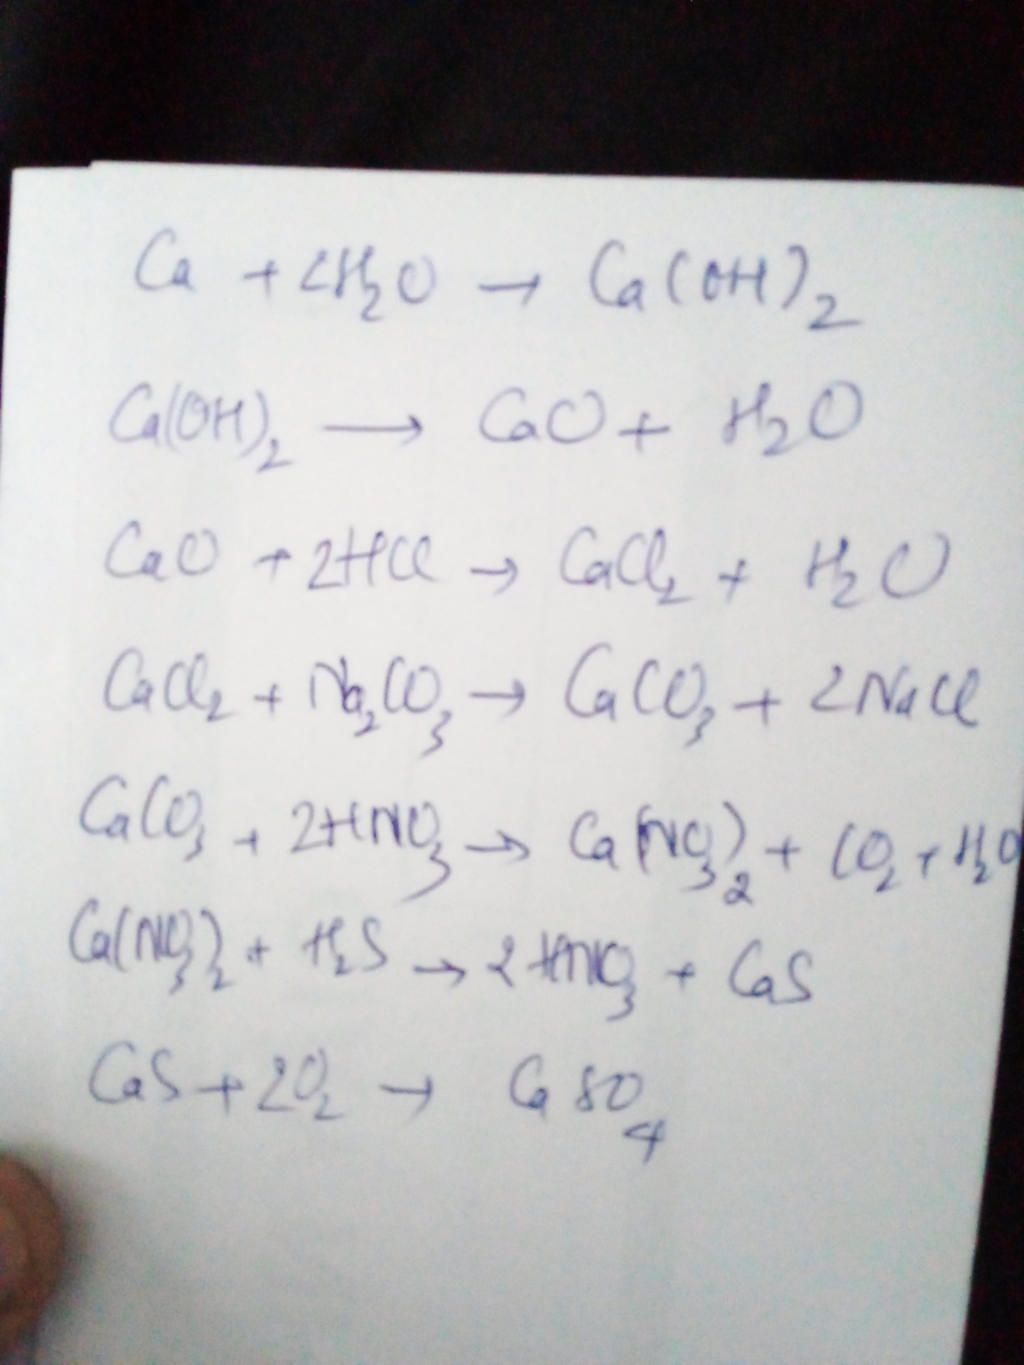 Ca + 2H₂O → Ca(OH)₂
Ca(OH)₂ → CaO + H₂O
CaO + 2HCl → CaCl₂ + H₂O
CaCl₂ + Na₂CO₃ → CaCO₃ + 2NaCl
CaCO₃ + 2HNO₃ → Ca(NO₃)₂ + CO₂ + H₂O
Ca(NO₃)₂ + H₂S → 2HNO₃ + CaS
CaS + 2O₂ → CaSO₄